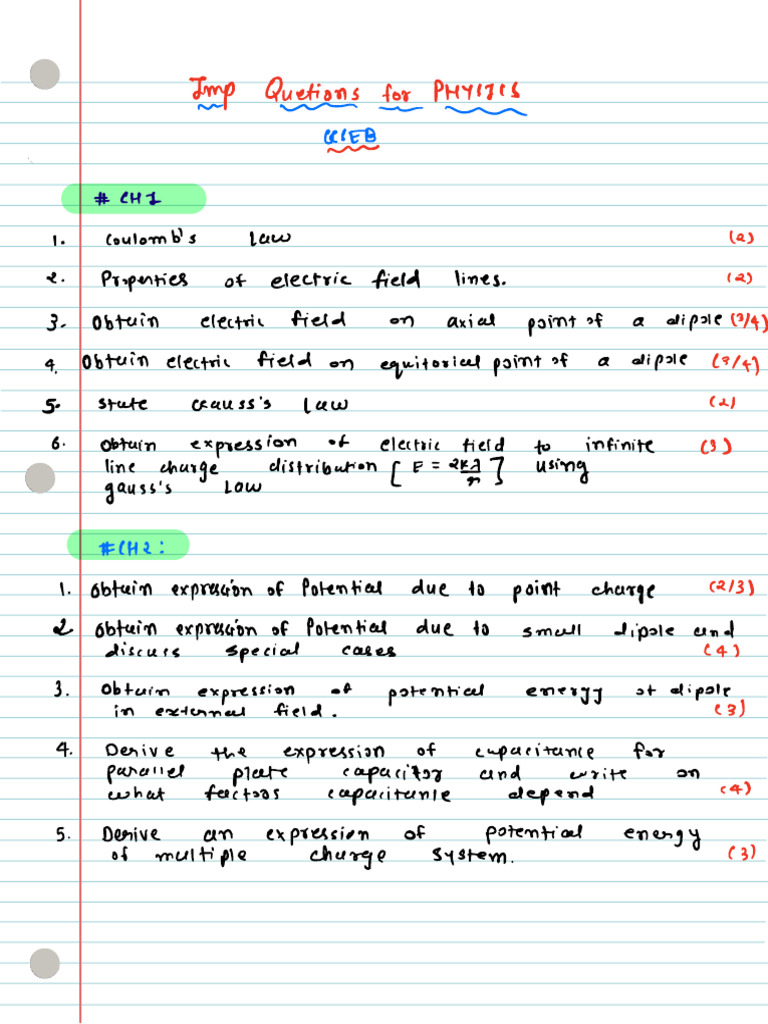 Imp Quetions for PHYSICS
GSEB
# CH1
1. Coulomb's Law (2)
2. Properties of electric field lines. (2)
3. Obtain electric field on axial point of a dipole (3/4)
4. Obtain electric field on equitorial point of a dipole (3/4)
5. State Gauss's Law (2)
6. Obtain expression of electric field to infinite (3)
line charge distribution [E = 2kλ/r] using
gauss's Law
# CH2:
1. Obtain expression of Potential due to point charge (2/3)
2 Obtain expression of Potential due to small dipole and
discuss special cases (4)
3. Obtain expression of potential energy of dipole
in external field. (3)
4. Derive the expression of capacitance for
parallel plate capacitor and write on
what factors capacitance depend (4)
5. Derive an expression of potential energy
of multiple charge system. (3)